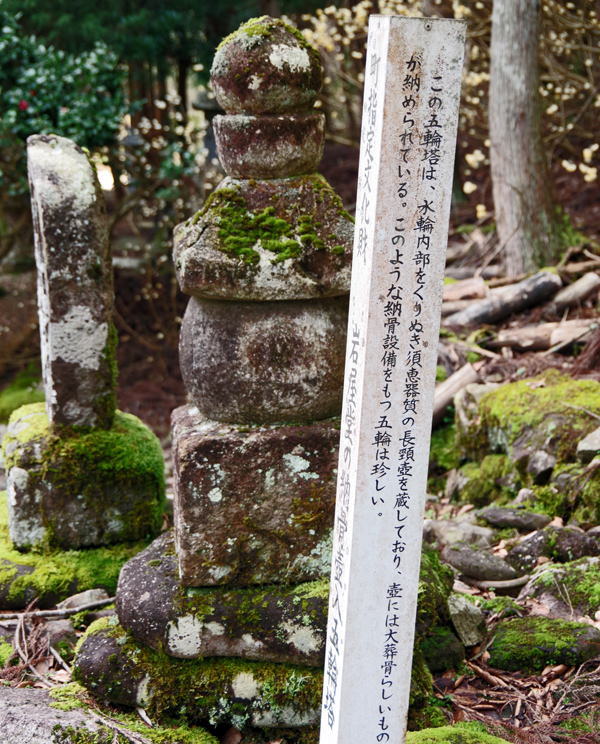 この五輪塔は、水輪内部をくりぬき須恵器質の長頸壺を蔵しており、壺には大葬骨らしいもの
が納められている。このような納骨設備をもつ五輪は珍しい。
町指定文化財
岩屋堂の納骨壺入五輪塔